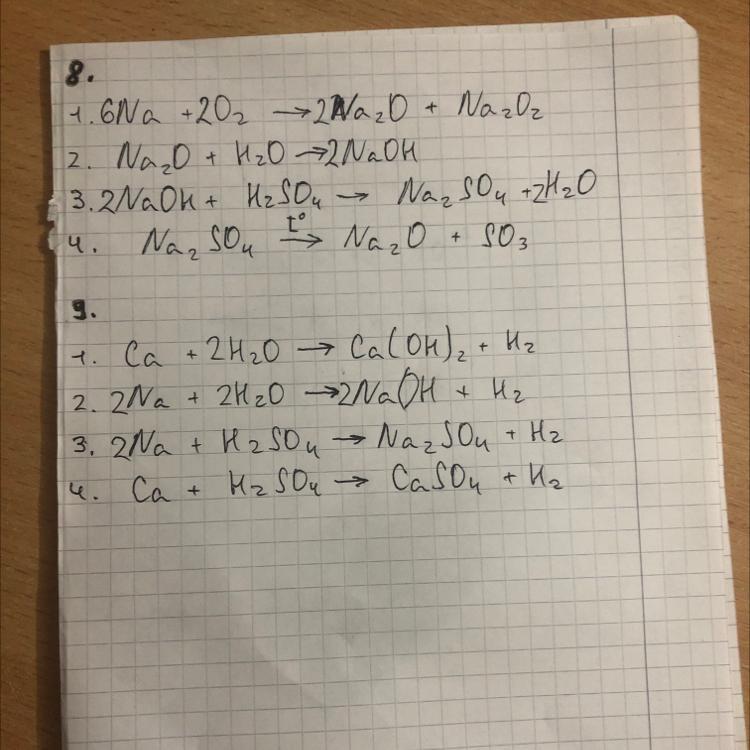 8.
1. 6Na + 2O₂ → 2Na₂O + Na₂O₂
2. Na₂O + H₂O → 2NaOH
3. 2NaOH + H₂SO₄ → Na₂SO₄ + 2H₂O
4. Na₂SO₄ t° → Na₂O + SO₃
9.
1. Ca + 2H₂O → Ca(OH)₂ + H₂
2. 2Na + 2H₂O → 2NaOH + H₂
3. 2Na + H₂SO₄ → Na₂SO₄ + H₂
4. Ca + H₂SO₄ → CaSO₄ + H₂